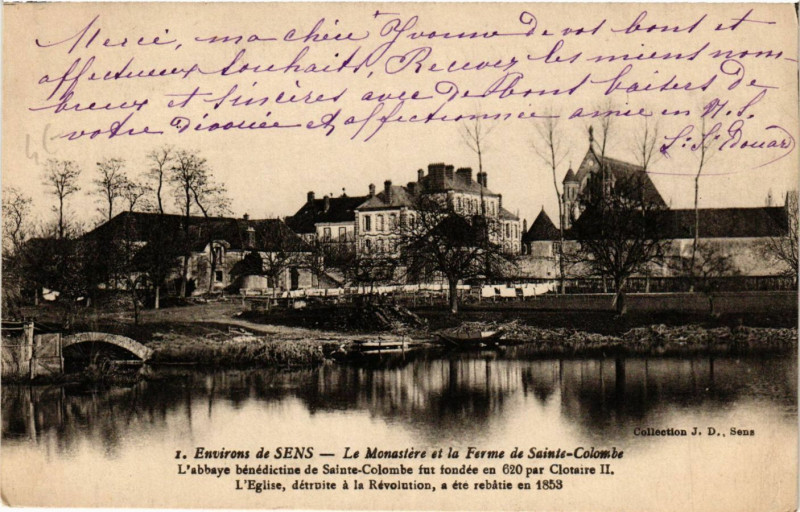 Merci, ma chère Yvonne de vos bons et
affectueux souhaits, Recevez les miens nom-
breux et sincères avec de bons baisers de
votre dévouée et affectionnée amie en N. S.
Douär
1. Environs de SENS — Le Monastère et la Ferme de Sainte-Colombe
L'abbaye bénédictine de Sainte-Colombe fut fondée en 620 par Clotaire II.
L'Eglise, détruite à la Révolution, a été rebâtie en 1853
Collection J. D., Sens